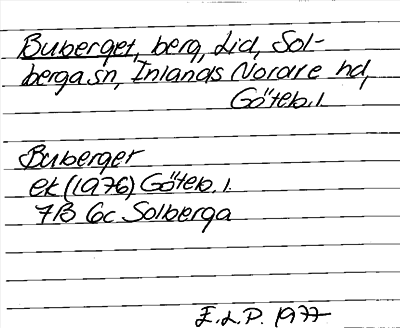 Buberget, berg, Lid, Sol-
berga sn, Inlands Nordre hd,
Göteb. l.
Buberget
ek (1976) Göteb. l.
7B 6c Solberga
E.L.P. 1977